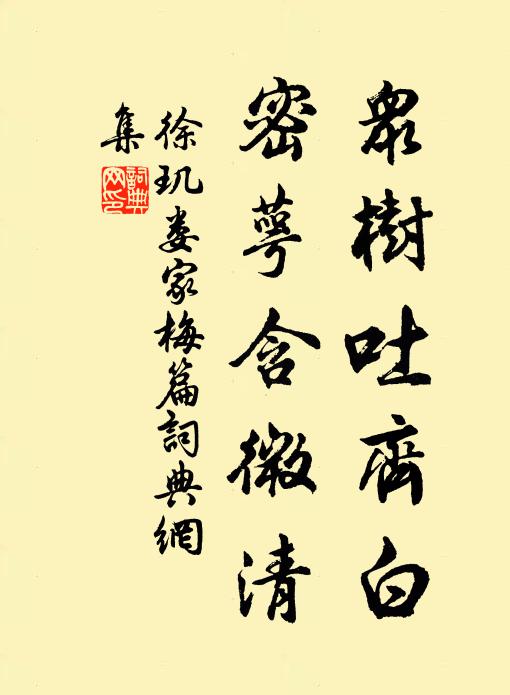 眾樹吐齊白
密萼含微清
徐玑婁家梅篇詞典網
集
詞典
网印